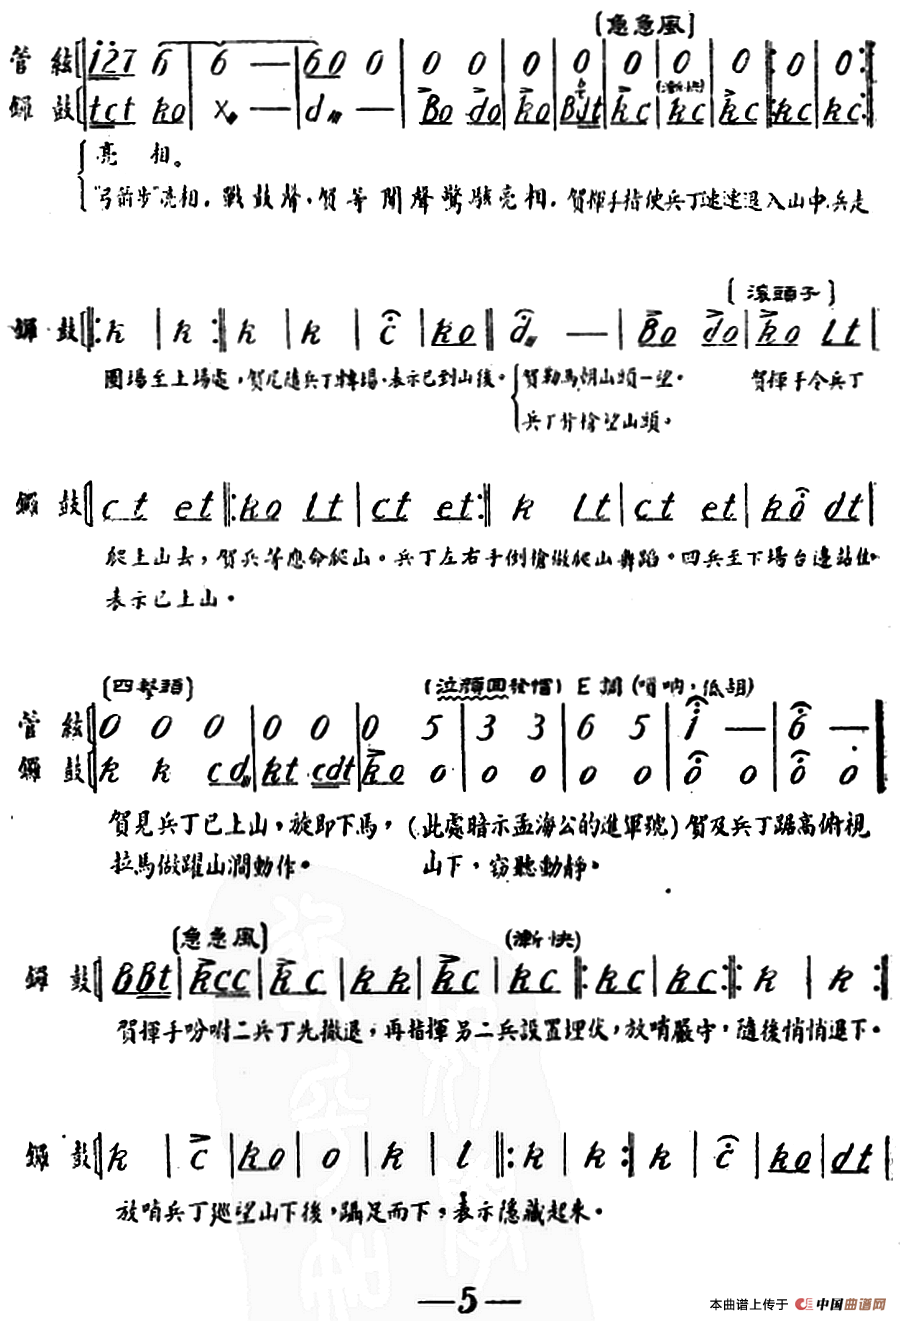 (急急風)
管絃 i 2 7 6 | 6 — | 6 0 0 | 0 0 | 0 | 0 | 0 | 0 | 0 |: 0 | 0 :|
鑼鼓 tct ko | x — | d — | Bo do | ko | Bdt | kc | (漸快) kc | kc |: kc | kc :|
亮 相。
"弓箭步"亮相，戰鼓聲，賀等聞聲驚駭亮相，賀揮手指使兵丁速速退入山中，兵走
(滾頭子)
鑼鼓 |: k | k :| k | k | c | ko || d — | Bo do | ko lt |
圓場至上場處，賀尾隨兵丁轉場，表示已到山後。 賀勒馬朝山頭一望。 賀揮手令兵丁
兵丁背槍望山頭。
鑼鼓 ct et |: ko lt | ct et :| k lt | ct et | ko dt |
爬上山去，賀兵等應命爬山。兵丁左右手倒槍做爬山舞蹈。四兵至下場台邊站住
表示已上山。
(四擊頭) (泣顏回發帽) E調 (嗩吶，低胡)
管絃 0 0 0 | 0 0 0 | 0 5 | 3 3 | 6 5 | i — | 6 — |
鑼鼓 k k cd | kt cdt | ko 0 | 0 0 | 0 0 | 0 0 | 0 0 |
賀見兵丁已上山，旋即下馬， (此處暗示孟海公的進軍號) 賀及兵丁踞高俯視
拉馬做躍山澗動作。 山下，窃聽動靜。
(急急風) (漸快)
鑼鼓 BBt | kcc | kc | kk | kc | kc |: kc | kc :| k | k :|
賀揮手吩咐二兵丁先撤退，再指揮另二兵設置埋伏，放哨嚴守，隨後悄悄退下。
鑼鼓 k | c | ko | o | k | l |: k | k :| k | c | ko | dt |
放哨兵丁巡望山下後，躡足而下，表示隱藏起來。
—5—
本曲谱上传于 中国曲谱网